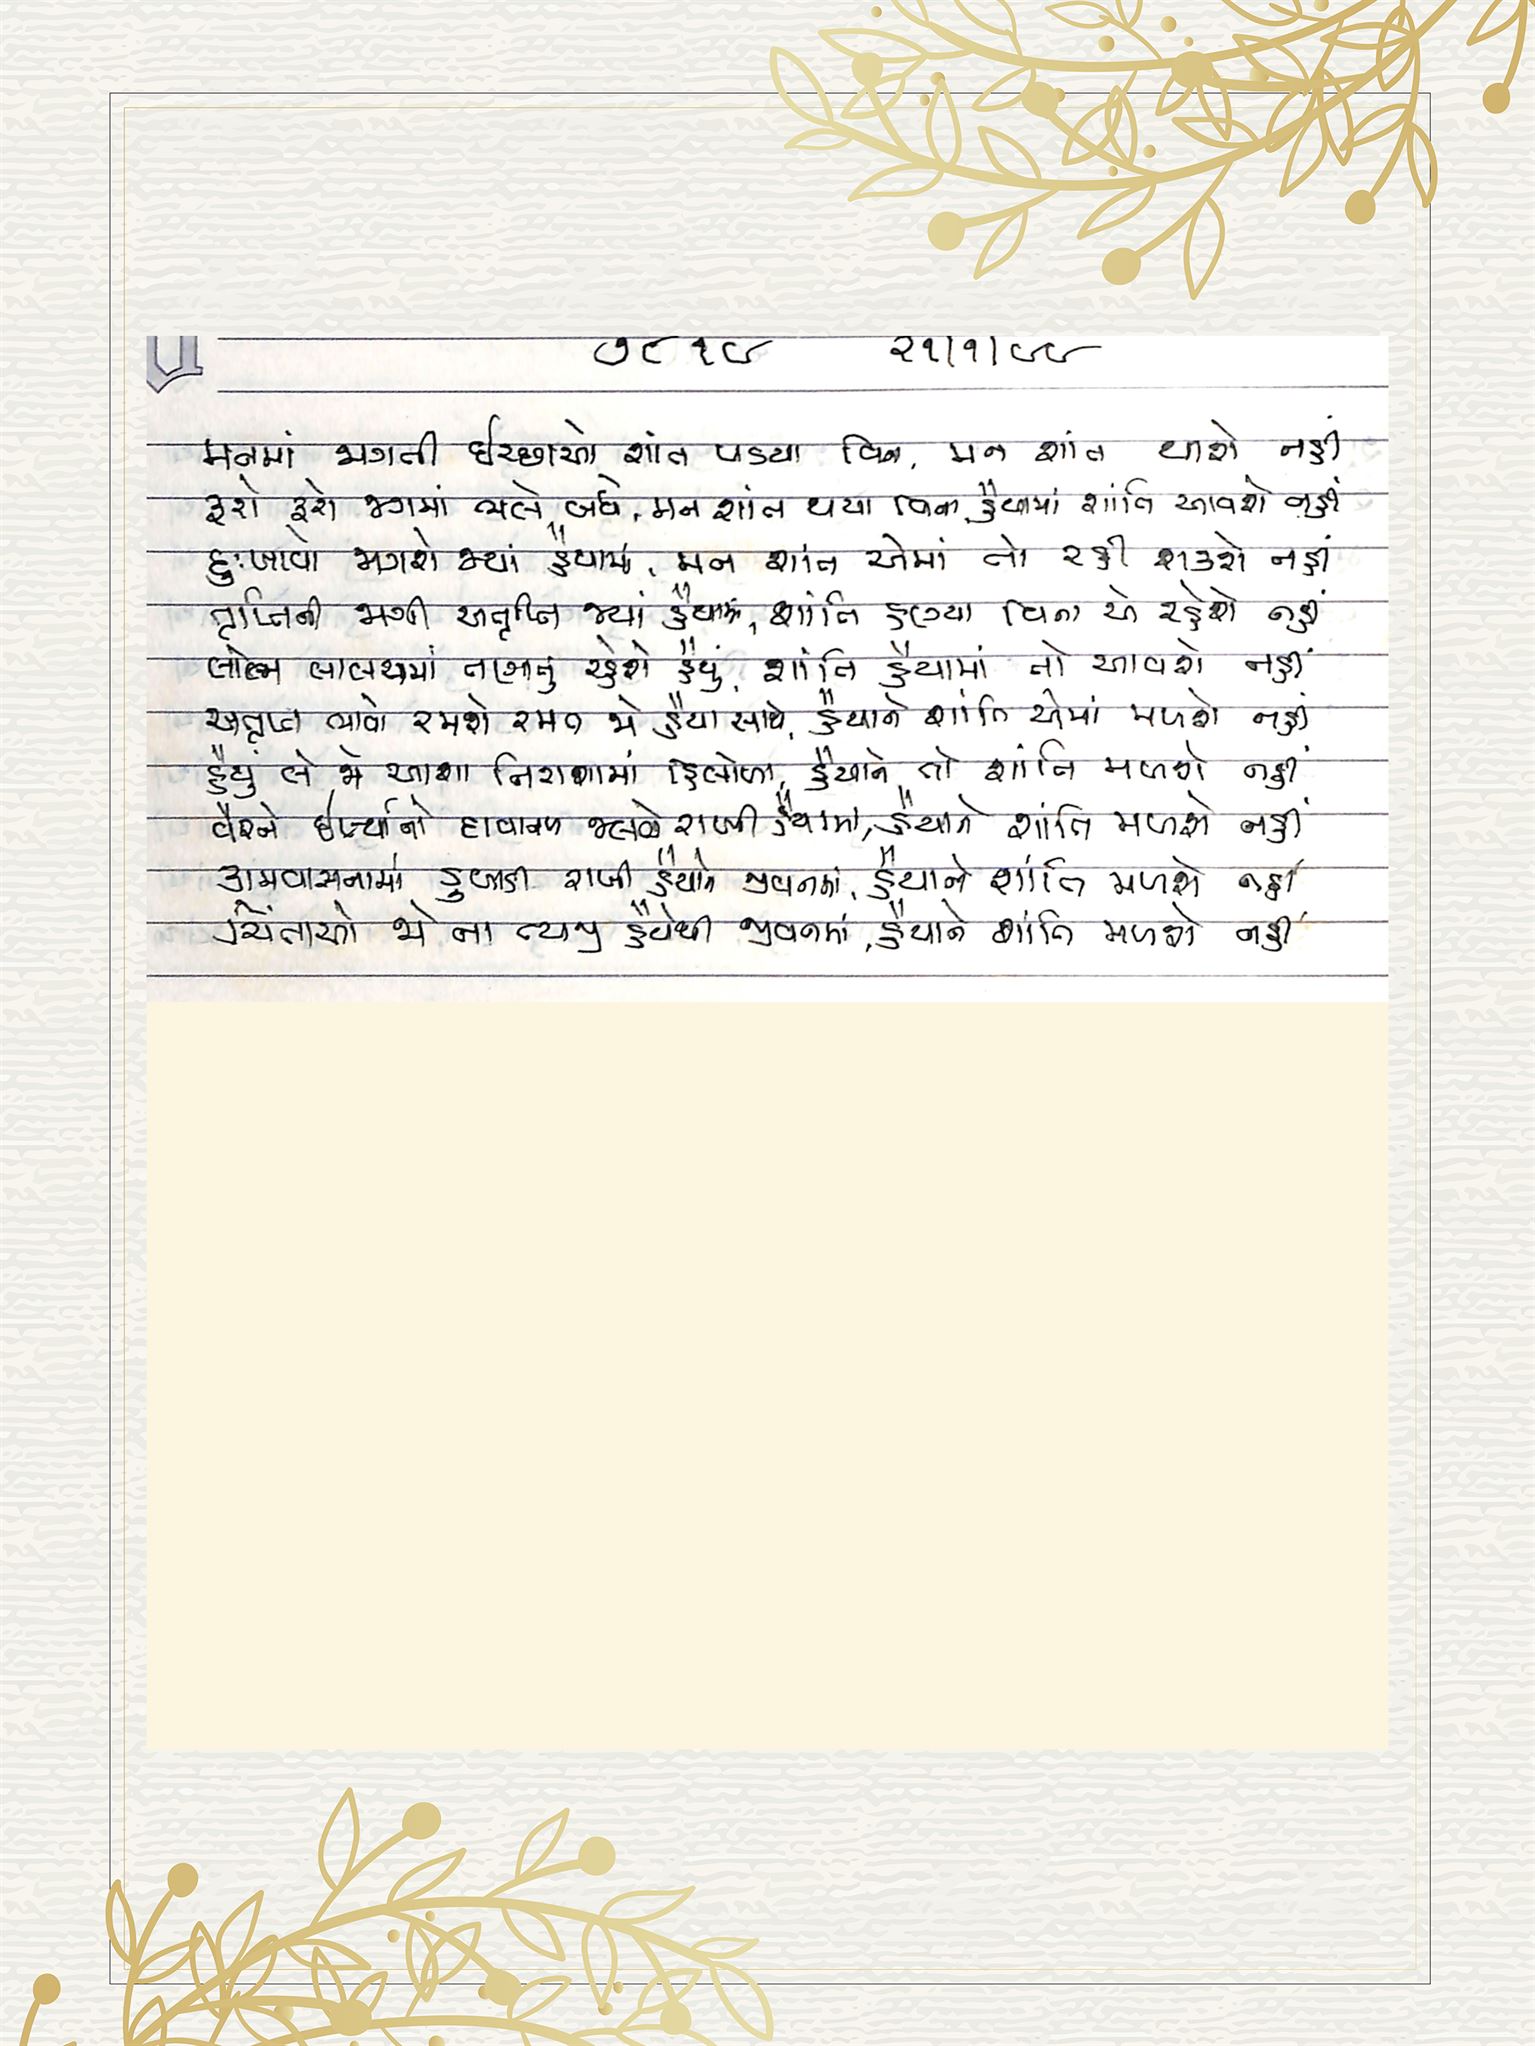 ૭૮૧૯ ૨૧/૧/૯૯
મનમાં જાગતી ઈચ્છાઓ શાંત પડયા વિના, મન શાંત થાશે નહીં
ફરો ફરો જગમાં ભલે બધે, મન શાંત થયા વિના હૈયામાં શાંતિ આવશે નહીં
દુઃખભાવો જાગશે જ્યાં હૈયામાં, મન શાંત એમાં તો રહી શકશે નહીં
તૃપ્તિની જાગી અતૃપ્તિ જ્યાં હૈયામાં, શાંતિ હણ્યા વિના એ રહેશે નહીં
લોભ લાલચમાં તણાતું રહેશે હૈયું, શાંતિ હૈયામાં તો આવશે નહીં
અતૃપ્ત ભાવો રમશે રમત જો હૈયા સાથે, હૈયાને શાંતિ એમાં મળશે નહીં
હૈયું લે જો આશા નિરાશામાં હિલોળા, હૈયાને તો શાંતિ મળશે નહીં
વૈરને ઈર્ષ્યાનો દાવાનળ જલાવી રાખી હૈયામાં, હૈયાને શાંતિ મળશે નહીં
કામવાસનામાં ડુબાડી રાખી હૈયાને જીવનમાં, હૈયાને શાંતિ મળશે નહીં
ચિંતાઓ જો ના ત્યજી હૈયેથી જીવનમાં, હૈયાને શાંતિ મળશે નહીં